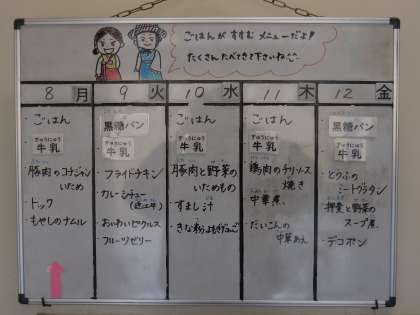 ごはんが すすむ メニューだよ!
たくさんたべてきて下さいね
8 月
・ごはん
ぎゅうにゅう
牛乳
・豚肉のコチジャン
いため
・トック
・もやしのナムル
9 火
黒糖パン
ぎゅうにゅう
牛乳
・フライドチキン
・カレーシチュー
・フルーツゼリー
10 水
・ごはん
ぎゅうにゅう
牛乳
・豚肉と野菜の
いためもの
・すまし汁
・きな粉よもぎだんご
11 木
・ごはん
ぎゅうにゅう
牛乳
・鶏肉のチリソース
焼き
・中華煮
・だいこんの
中華あえ
12 金
黒糖パン
ぎゅうにゅう
牛乳
・とうふの
ミートグラタン
・押麦と野菜の
スープ煮
・デコポン